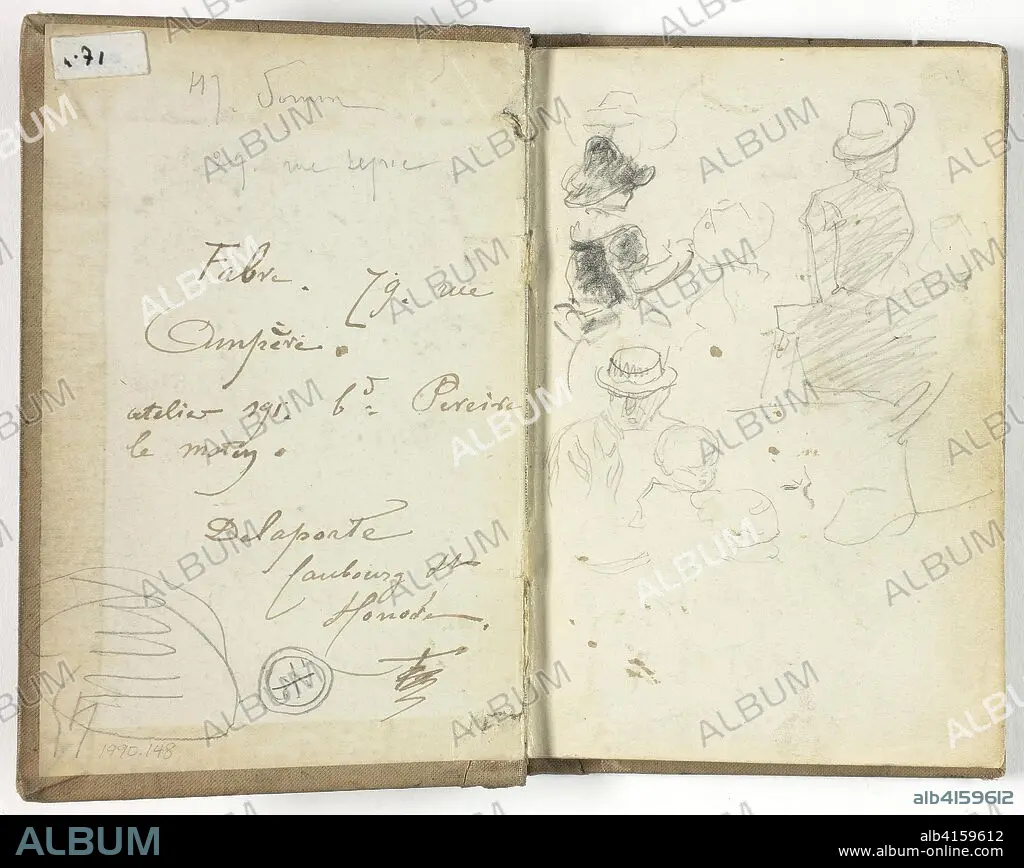 n. 71
H. Somm
rue Lepic
Fabre. 79. rue
Ampère.
atelier 191. bd = Pereire
le matin.
Delaporte
faubourg St
Honoré.
1990.148
ALBUM
alb4159612
ALBUM
alb4159612
www.album-online.com